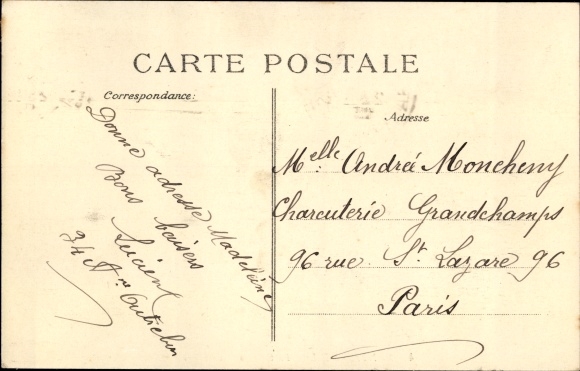 CARTE POSTALE
Correspondance:
Adresse
Donne adresse Madeleine
Bons baisers
Lucien
34 A
Melle Andrée Moncheny
Charcuterie Grandchamps
96 rue St. Lazare 96
Paris